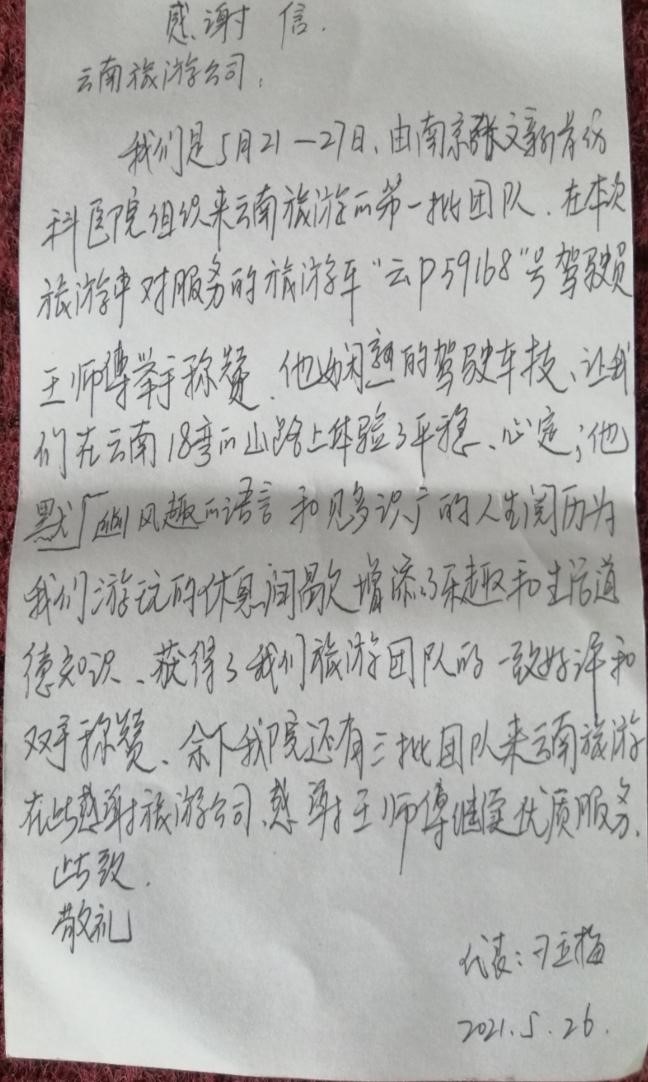 感谢信.
云南旅游公司:
我们是5月21—27日、由南京张文新骨伤
科医院组织来云南旅游的第一批团队.在本次
旅游中对服务的旅游车“云P59168”号驾驶员
王师傅举手称赞.他娴熟的驾驶车技、让我
们在云南18弯的山路上体验了平稳、心定;他
默幽风趣的语言和见多识广的人生阅历为
我们游玩的休息间歇增添了乐趣和生活道
德知识、获得了我们旅游团队的一致好评和
双手称赞、余下我院还有三批团队来云南旅游
在此感谢旅游公司、感谢王师傅继续优质服务.
此致.
敬礼
代表:刁玉梅
2021.5.26.